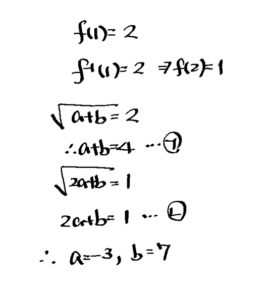 f(1)=2
f⁻¹(1)=2 ⇒f(2)=1
√(a+b)=2
∴a+b=4 ... ㉠
√(2a+b)=1
2a+b=1 ... ㉡
∴ a=-3, b=7